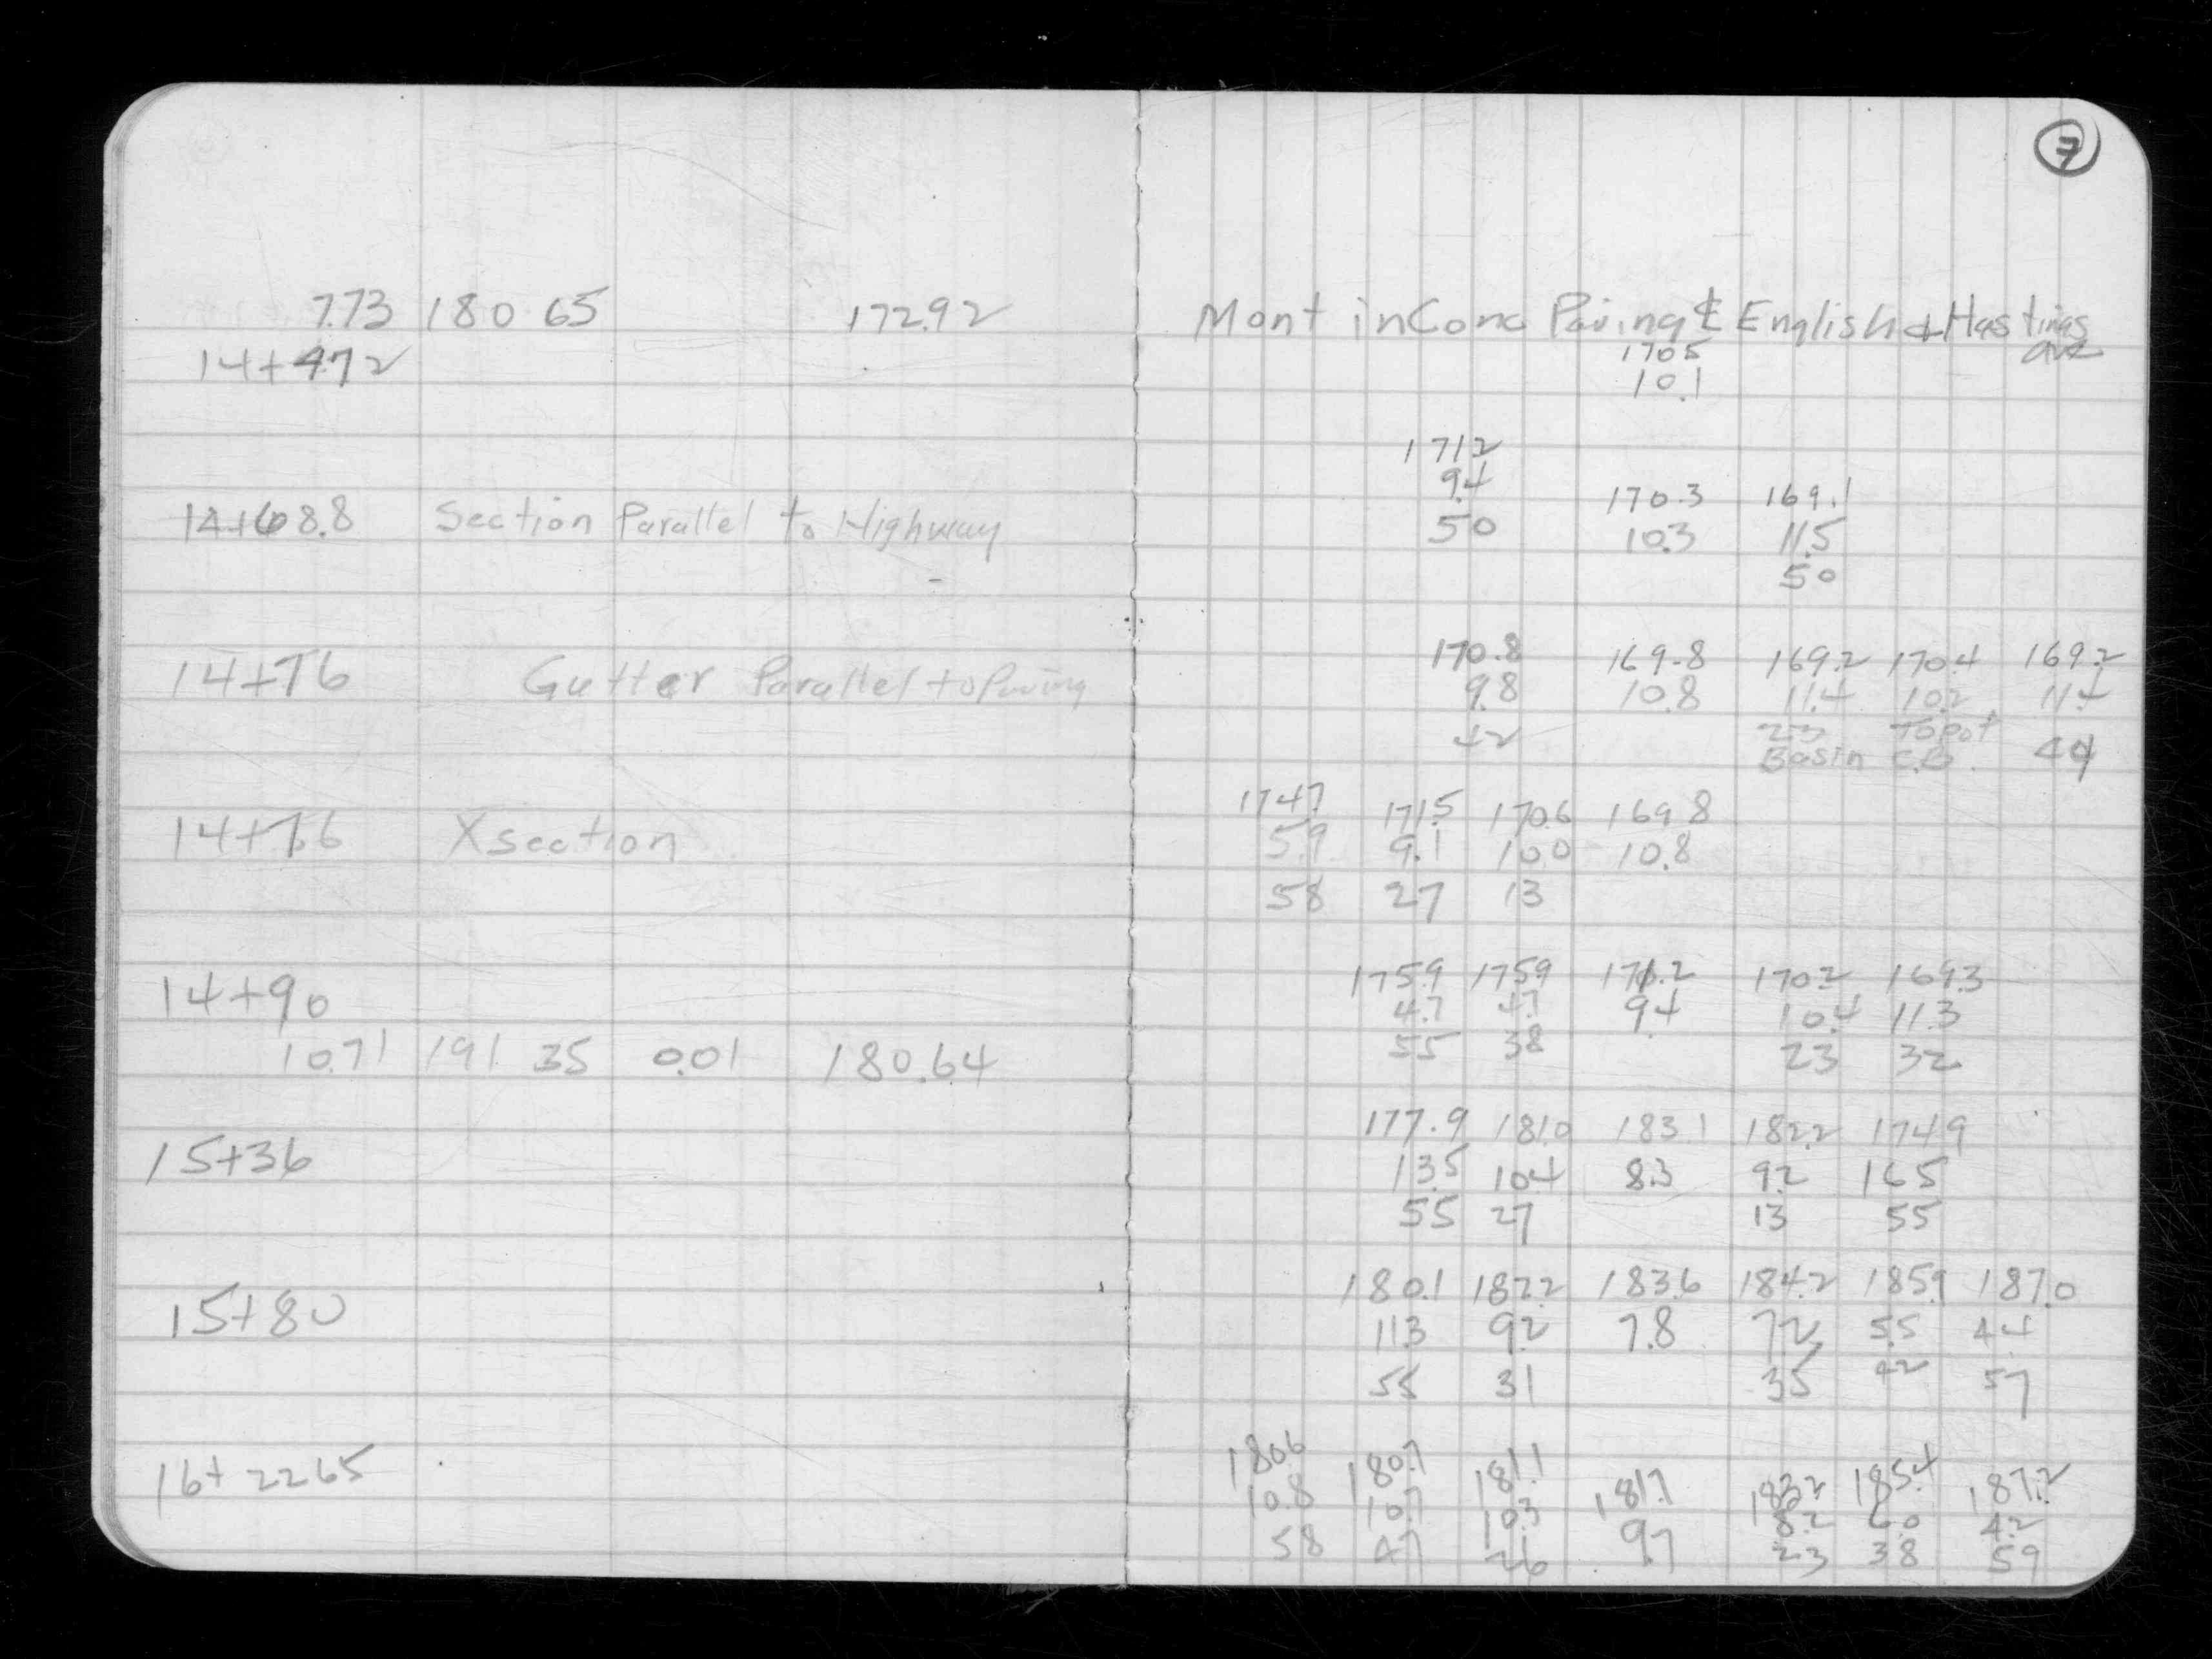 7
7.73 180 65 172.92 Mont in Conc Paving ℄ English & Hastings
ave
14+472 1705
10.1
1712
9.4 170.3 169.1
14+68.8 Section Parallel to Highway 50 10.3 11.5
50
170.8 169.8 169.2 170.4 169.2
14+76 Gutter Parallel to Paving 9.8 10.8 11.4 10.2 11.4
42 23 Top of 44
Basin C.B.
174.7 171.5 170.6 169.8
14+76 Xsection 5.9 9.1 10.0 10.8
58 27 13
175.9 175.9 171.2 170.2 169.3
14+90 4.7 4.7 9.4 10.4 11.3
10.71 191 35 0.01 180.64 55 38 23 32
177.9 181.0 183.1 182.2 174.9
15+36 13.5 10.4 8.3 9.2 16.5
55 27 13 55
180.1 182.2 183.6 184.2 185.9 187.0
15+80 11.3 9.2 7.8 7.2 5.5 4.4
55 31 35 42 57
180.6 180.7 181.1 181.7 183.2 185.4 187.2
16+2265 10.8 10.7 10.3 9.7 8.2 6.0 4.2
58 47 26 23 38 59